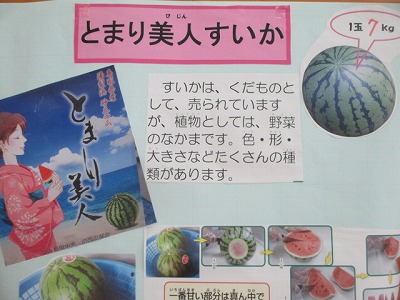 びじん
とまり美人すいか
1玉 7kg
すいかは、くだものと
して、売られています
が、植物としては、野菜
のなかまです。色・形・
大きさなどたくさんの種
類があります。
とまり美人
いちばんあま ぶぶん ま なか
一番甘い部分は真ん中で